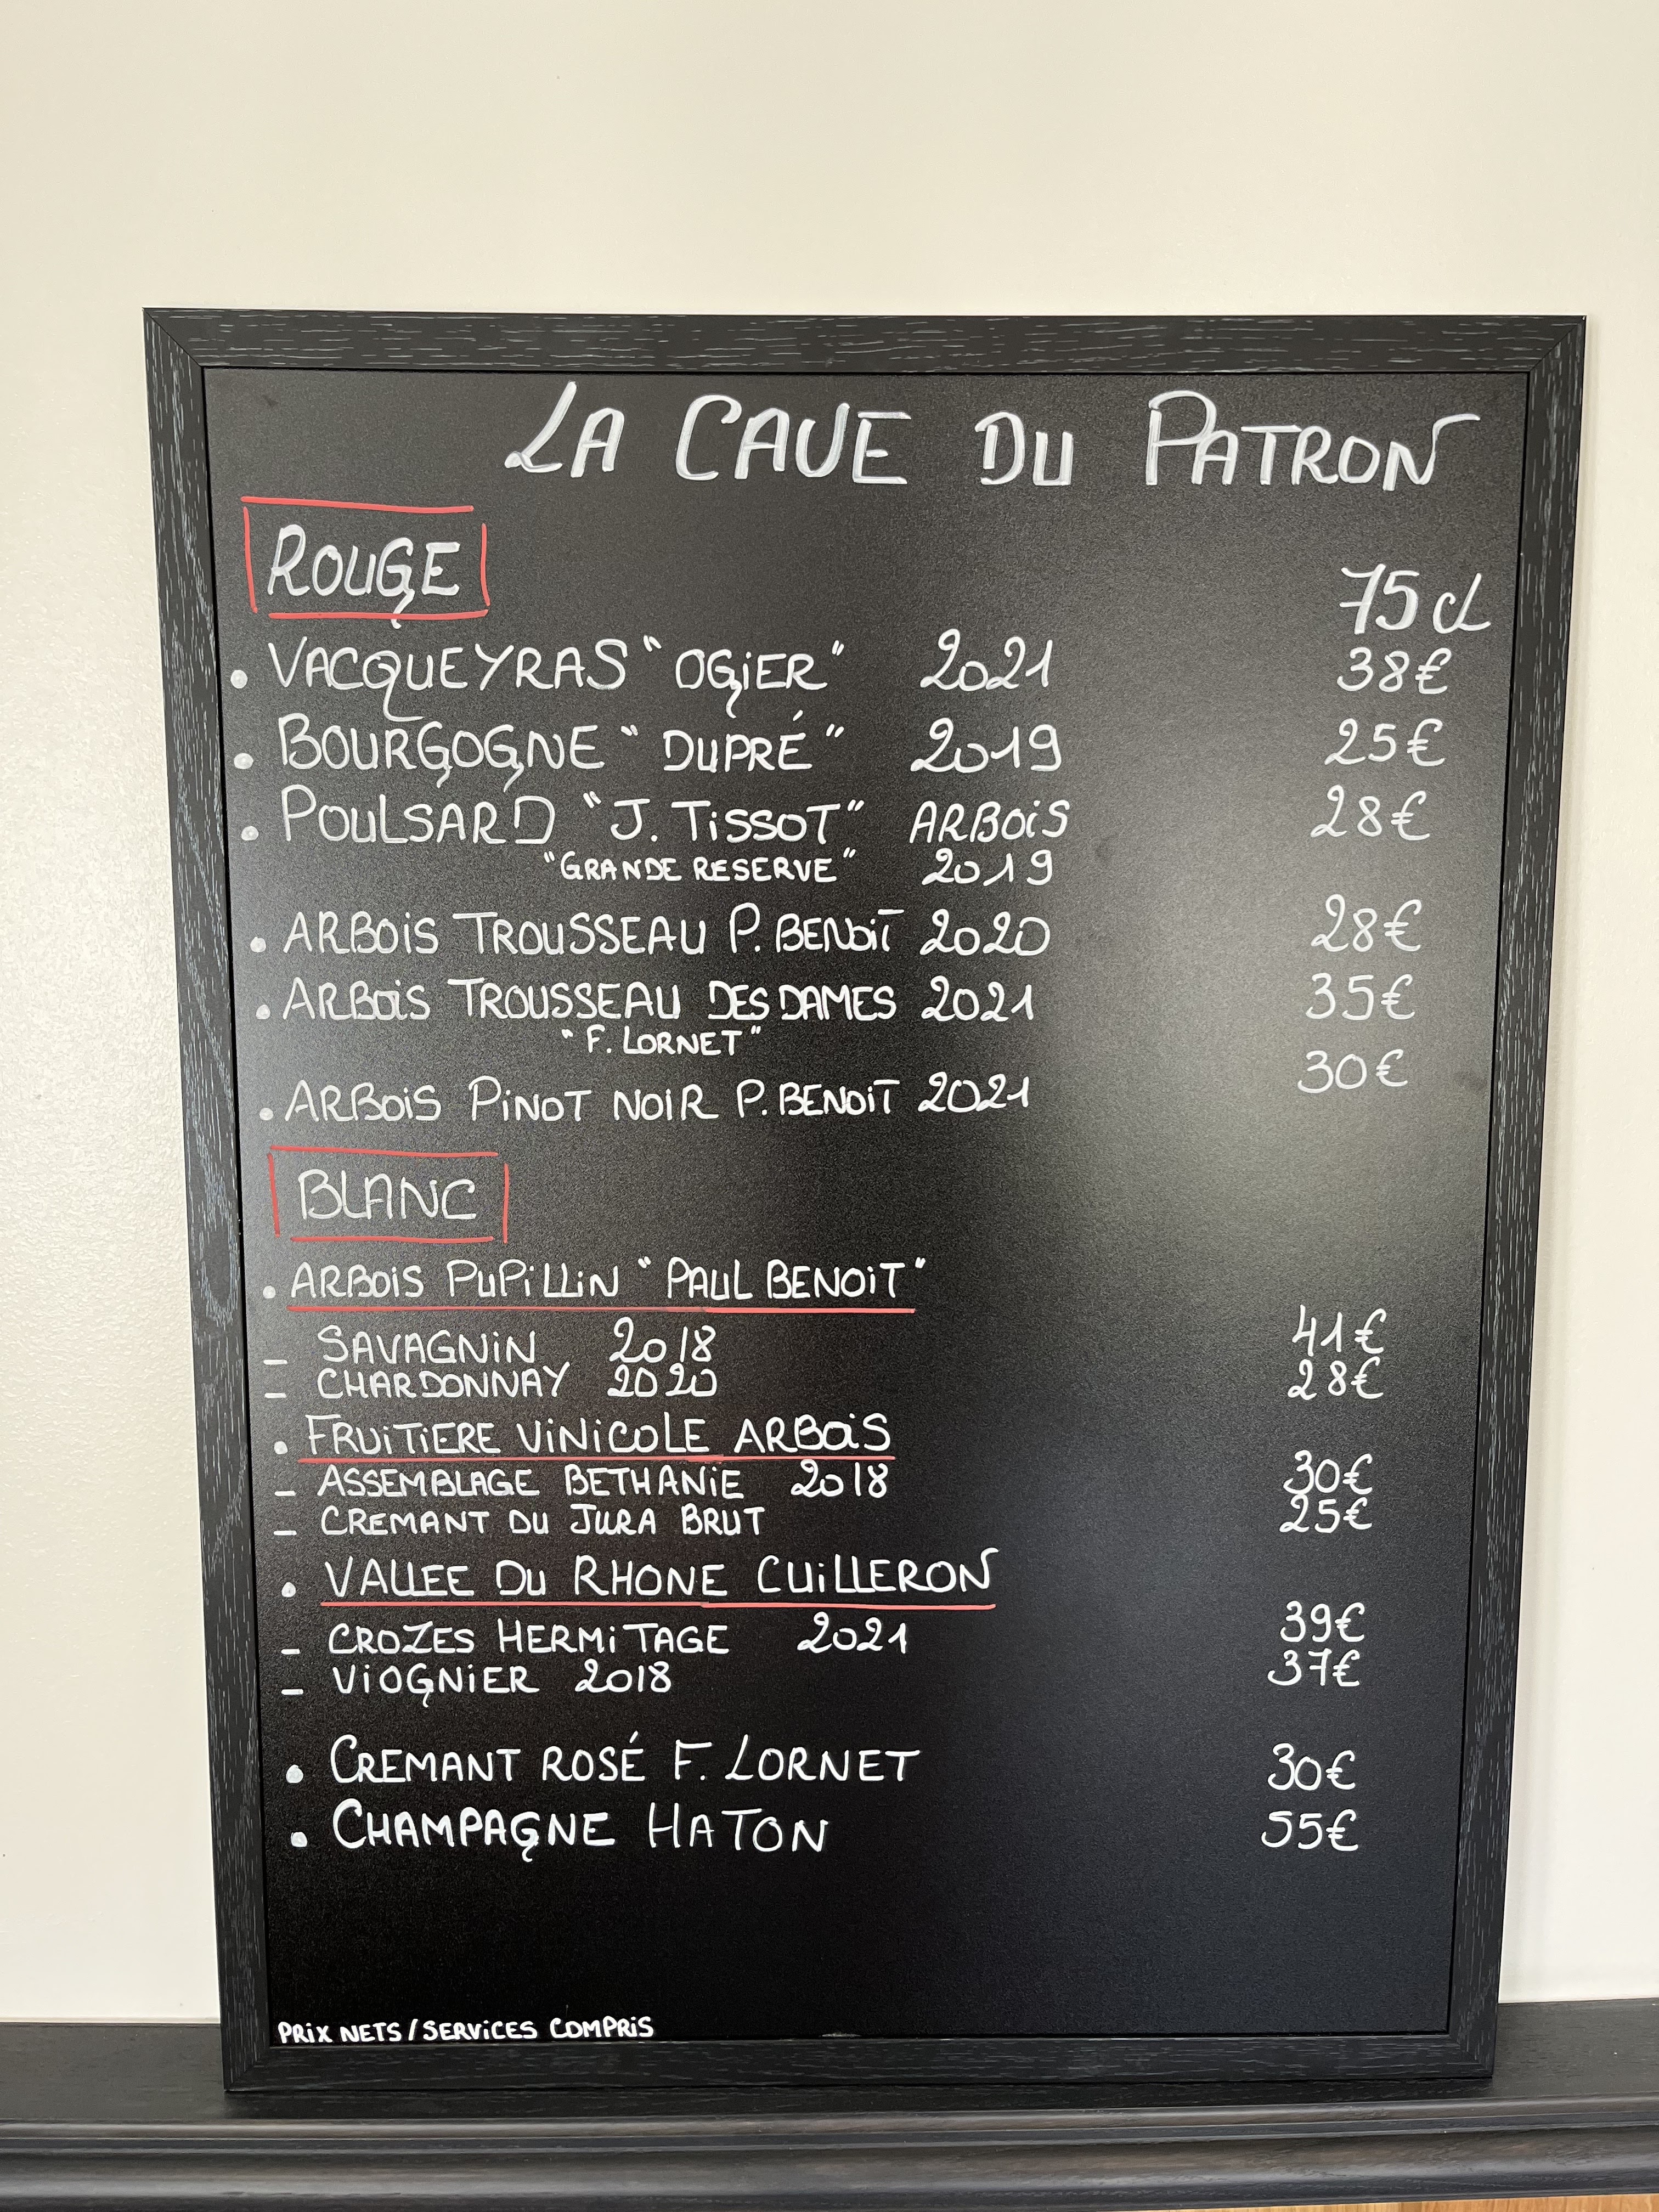 LA CAVE DU PATRON
ROUGE
75cl
• VACQUEYRAS "OGIER" 2021 38€
• BOURGOGNE "DUPRÉ" 2019 25€
• POULSARD "J. TISSOT" ARBOIS 28€
"GRANDE RESERVE" 2019
• ARBOIS TROUSSEAU P. BENOIT 2020 28€
• ARBOIS TROUSSEAU DES DAMES 2021 35€
"F. LORNET"
• ARBOIS PINOT NOIR P. BENOIT 2021 30€
BLANC
• ARBOIS PUPILLIN "PAUL BENOIT"
- SAVAGNIN 2018 41€
- CHARDONNAY 2020 28€
• FRUITIERE VINICOLE ARBOIS
- ASSEMBLAGE BETHANIE 2018 30€
- CREMANT DU JURA BRUT 25€
• VALLEE DU RHONE CUILLERON
- CROZES HERMITAGE 2021 39€
- VIOGNIER 2018 37€
• CREMANT ROSÉ F. LORNET 30€
• CHAMPAGNE HATON 55€
PRIX NETS/SERVICES COMPRIS